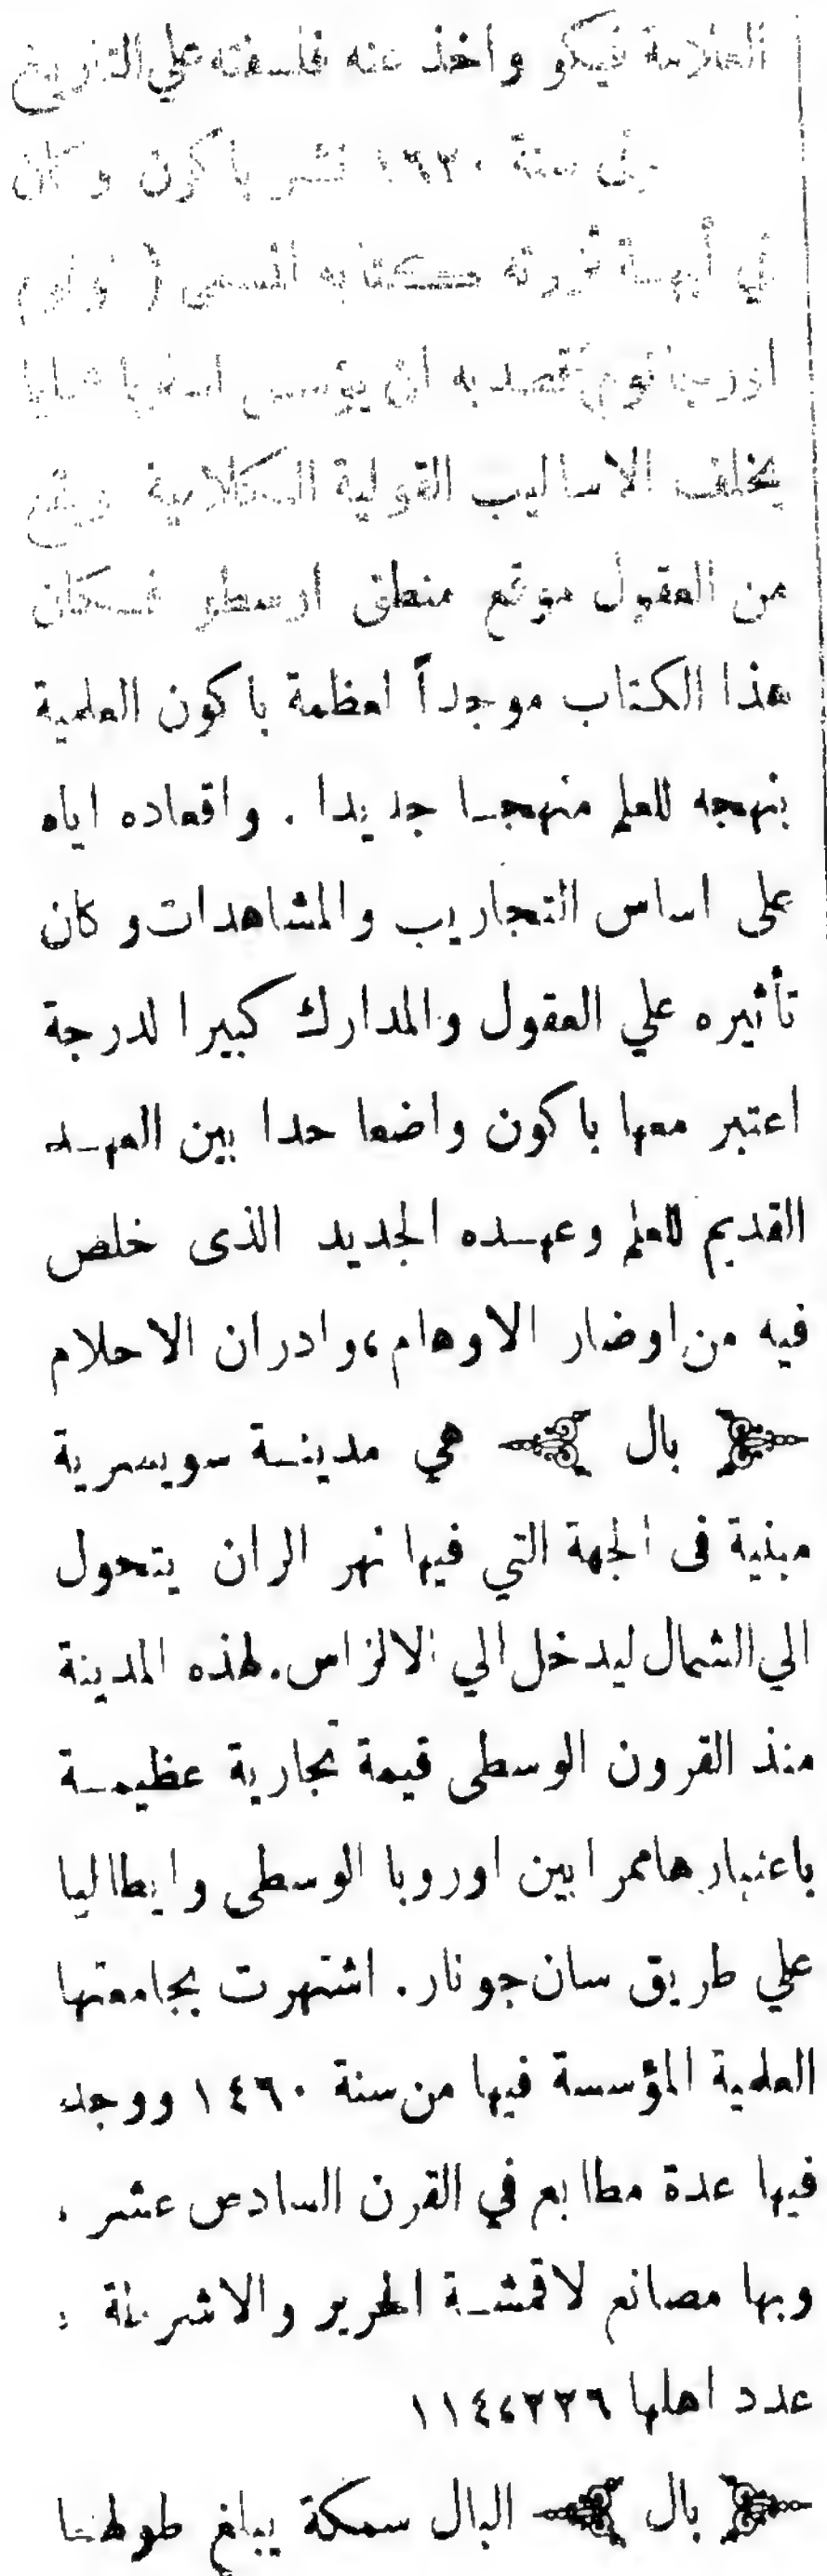 العلامة فيكو واخذ عنه فلسفته علي التاريخ
في سنة ١٦٢٠ نشر باكون وكان
في أبهة ثروته كتابه المسمى (نوفم
اورجانوم) قصد به ان يؤسس اسلوبا علميا
يخلف الاساليب القولية الكلامية ويقع
من العقول موقع منطق ارسطو فكان
هذا الكتاب موجداً لعظمة باكون العلمية
بنهجه للعلم منهجا جديدا . واقعاده اياه
على اساس التجاريب والمشاهدات وكان
تأثيره علي العقول والمدارك كبيرا لدرجة
اعتبر معها باكون واضعا حدا بين العهد
القديم للعلم وعهده الجديد الذى خلص
فيه من اوضار الاوهام، وادران الاحلام
﴿ بال ﴾ هي مدينة سويسرية
مبنية فى الجهة التي فيها نهر الران يتحول
الي الشمال ليدخل الي الالزاس. لهذه المدينة
منذ القرون الوسطى قيمة تجارية عظيمة
باعتبارها ممرا بين اوروبا الوسطى وايطاليا
علي طريق سان جونار. اشتهرت بجامعتها
العلمية المؤسسة فيها من سنة ١٤٦٠ ووجد
فيها عدة مطابع في القرن السادس عشر .
وبها مصانع لاقمشة الحرير والاشرطة :
عدد اهلها ١١٤،٢٢٦
﴿ بال ﴾ البال سمكة يبلغ طولها